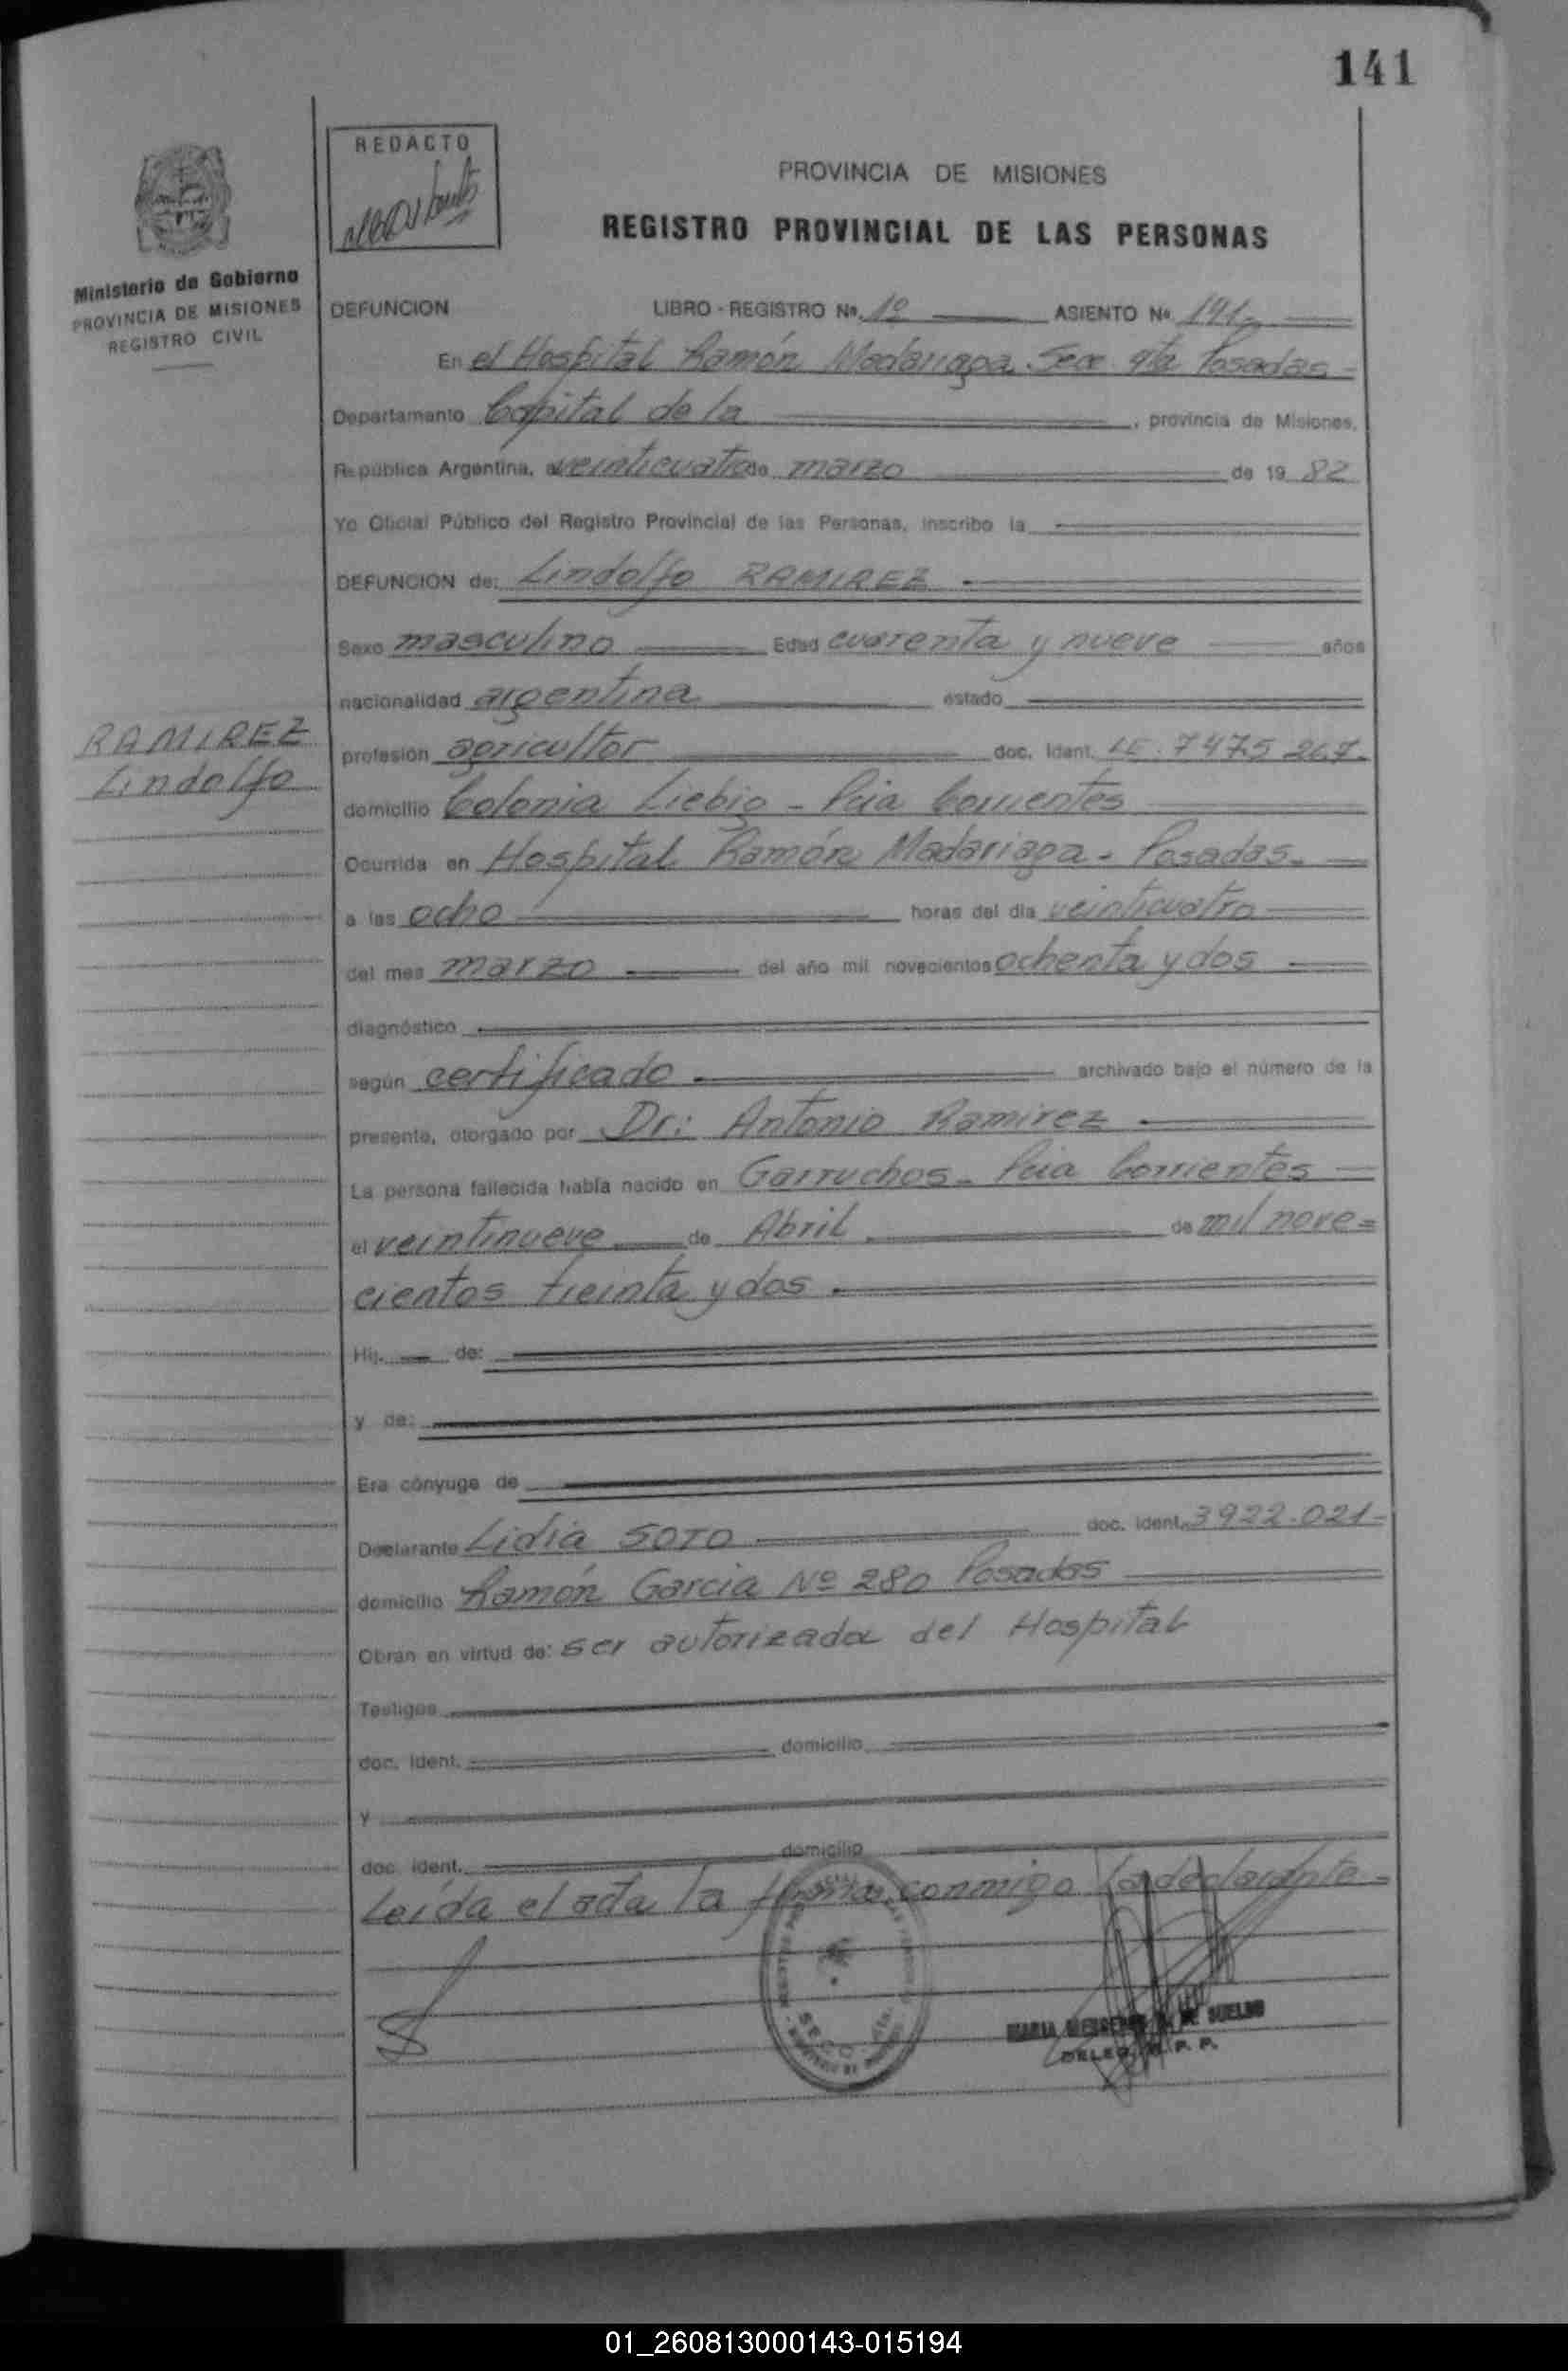 141
REDACTO
PROVINCIA DE MISIONES
REGISTRO PROVINCIAL DE LAS PERSONAS
Ministerio de Gobierno
PROVINCIA DE MISIONES
REGISTRO CIVIL
DEFUNCION LIBRO - REGISTRO No. 1º ASIENTO No 141
En el Hospital Ramón Madariaga Secc 4ta Posadas
Departamento Capital de la , provincia de Misiones,
República Argentina, a veinticuatro de marzo de 19 82
Yo Oficial Público del Registro Provincial de las Personas, inscribo la
DEFUNCION de: Lindolfo RAMIREZ
Sexo masculino Edad cuarenta y nueve años
nacionalidad argentina estado
RAMIREZ
Lindolfo
profesión agricultor doc. Ident. LE. 7475 267.
domicilio Colonia Liebig - Pcia Corrientes
Ocurrida en Hospital Ramón Madariaga - Posadas.
a las ocho horas del día veinticuatro
del mes marzo del año mil novecientos ochenta y dos
diagnóstico
según certificado archivado bajo el número de la
presente, otorgado por Dr: Antonio Ramirez
La persona fallecida había nacido en Garruchos - Pcia Corrientes
el veintinueve de Abril de mil nove=
cientos treinta y dos
Hij. de:
y de:
Era cónyuge de
Declarante Lidia SOTO doc. Ident. 3922.021-
domicilio Ramón Garcia Nº 280 Posadas
Obran en virtud de: ser autorizada del Hospital
Testigos
doc. Ident. domicilio
y
doc. ident. domicilio
Leída el acta la firma conmigo la declarante-
MARIA DE SUELDO
DELEG. R. P. P.
01_260813000143-015194